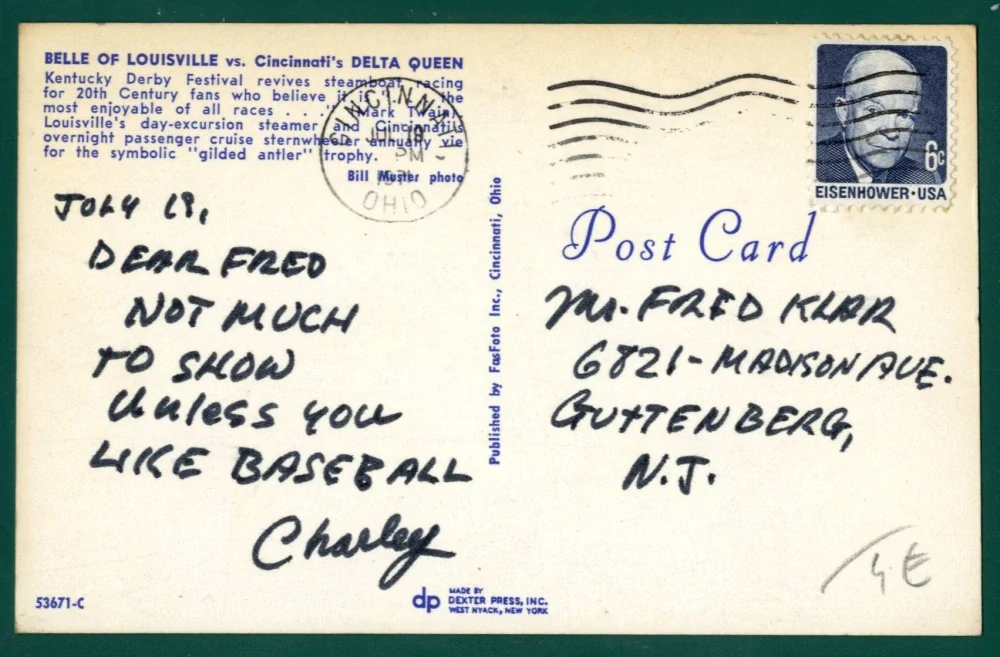 BELLE OF LOUISVILLE vs. Cincinnati's DELTA QUEEN
Kentucky Derby Festival revives steamboat racing
for 20th Century fans who believe it is the
most enjoyable of all races . . . Mark Twain.
Louisville's day-excursion steamer and Cincinnati's
overnight passenger cruise sternwheeler annually vie
for the symbolic "gilded antler" trophy.
Bill Muster photo
CINCINNATI
PM
OHIO
6c
EISENHOWER·USA
JULY 19,
DEAR FRED
NOT MUCH
TO SHOW
Unless you
LIKE BASEBALL
Charley
Published by FasFoto Inc., Cincinnati, Ohio
Post Card
Mr. FRED KLAR
6821- MADISON AVE.
GUTTENBERG,
N.J.
53671-C
dp
MADE BY
DEXTER PRESS, INC.
WEST NYACK, NEW YORK